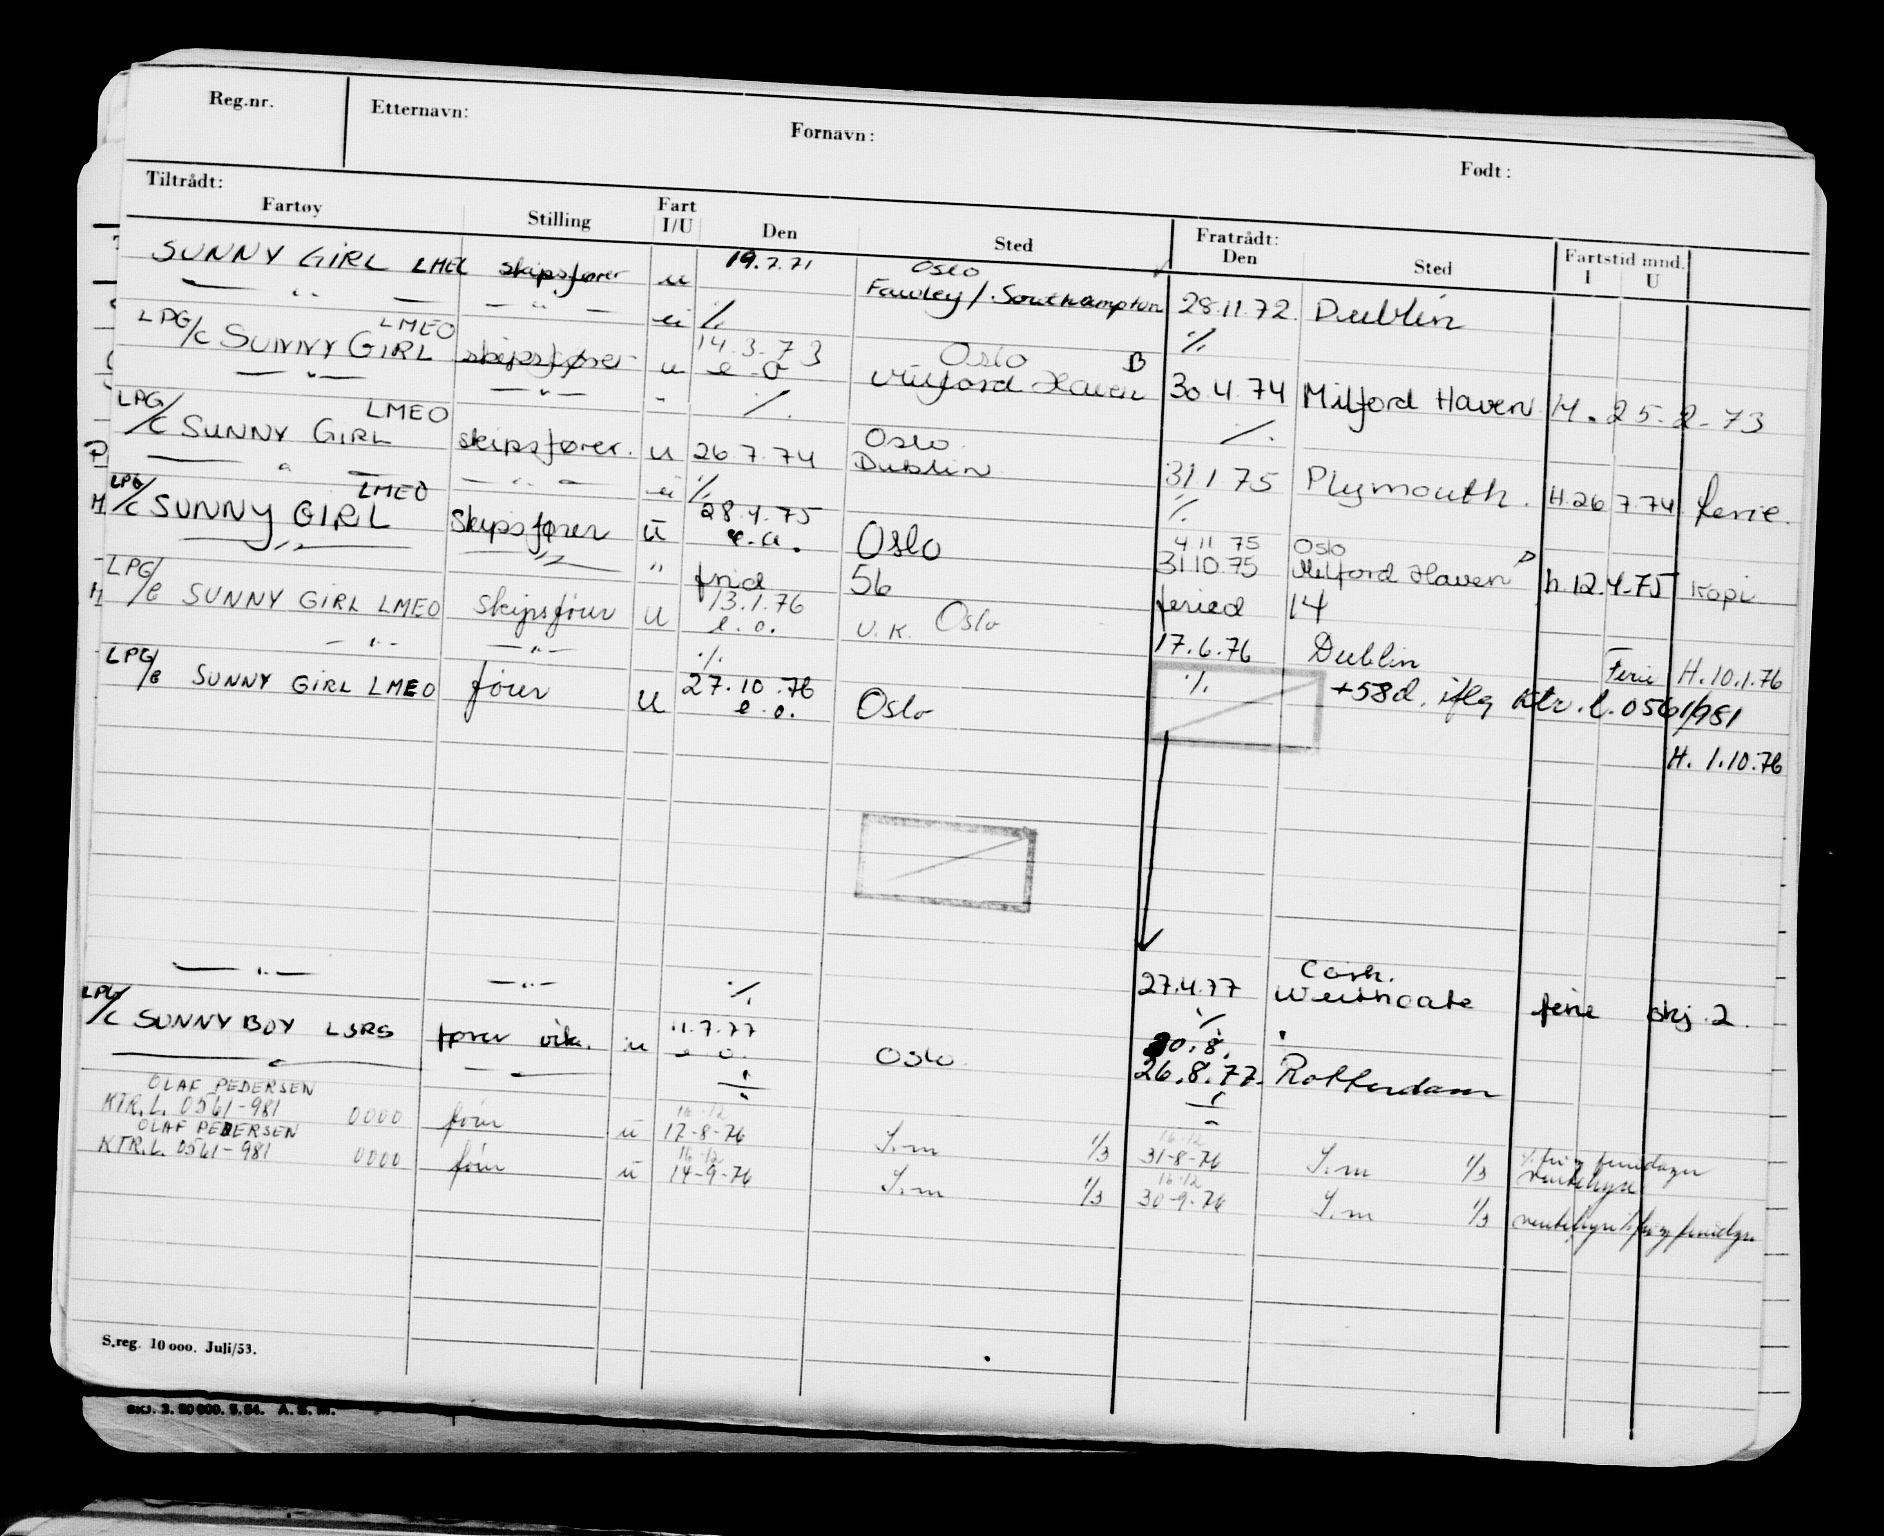 Reg.nr. Etternavn: Fornavn: Født:
Tiltrådt: Fratrådt: Fartstid mnd.
Fartøy Stilling Fart I/U Den Sted Den Sted I U
SUNNY GIRL skipsfører u 19.7.71 Oslo
—"— —"— Fawley/Southampton 28.11.72. Dublin
LPG/C SUNNY GIRL LMEO skipsfører u 14.3.73 Oslo
—"— —"— Milford Haven 30.4.74 Milford Haven H. 25.2.73
LPG/C SUNNY GIRL LMEO skipsfører. u 26.7.74 Oslo
Dublin 31.1.75 Plymouth. H.26 7.74 ferie.
LPG/C SUNNY GIRL LMEO Skipsfører U 28.4.75 Oslo 4 11 75 Oslo
31.10.75 Milford Haven h.12.4.75 Kopi
frid 56 feried 14
LPG/C SUNNY GIRL LMEO Skipsfører U 13.1.76 U.K. Oslo
e.o. 17.6.76 Dublin Ferie H.10.1.76
LPG/C SUNNY GIRL LMEO fører U 27.10.76 Oslo ./. +58d. iflg Ktr.l. 0561/981
e.o.
H. 1.10.76
—"— —"— ./. 27.4.77 ferie skj 2.
LPG/C SUNNY BOY LJRS fører vik. u 11.7.77 Oslo. ./.
26.8.77. Rotterdam
OLAF PEDERSEN
KTR.L. 0561-981 0000 fører u 16-12 17-8-76 S.m 1/3 16-12 31-8-76 S.m 1/3
OLAF PEDERSEN
KTR.L. 0561-981 0000 fører u 16-12 14-9-76 S.m 1/3 16-12 30-9-76 S.m 1/3
S.reg. 10 000. Juli/53.
SKJ. 3. 50 000. 5.54. A. S. M.